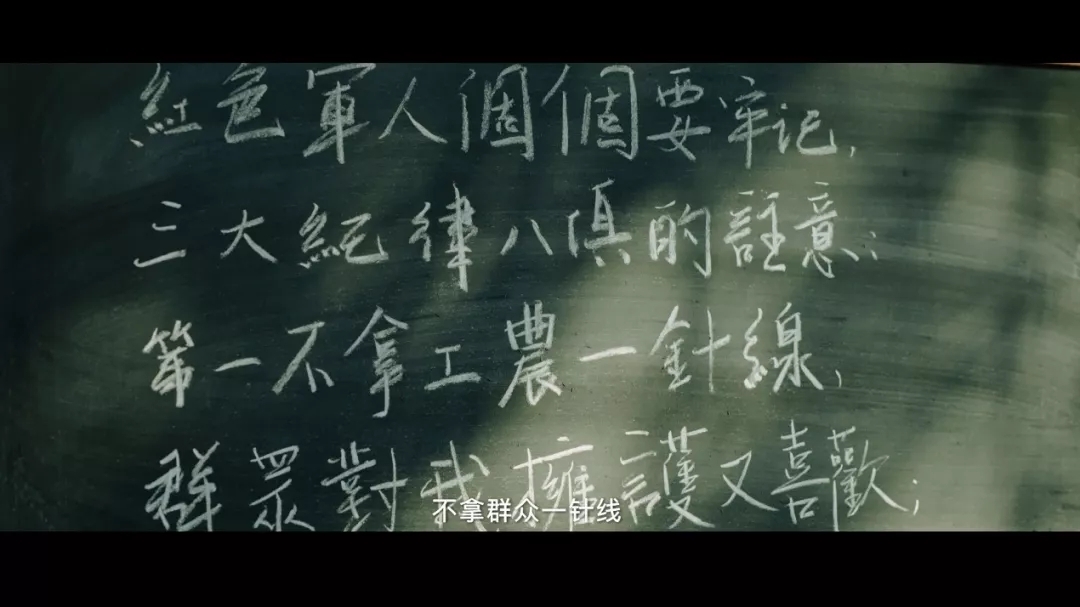 紅色軍人個個要牢记,
三大紀律八俱的註意;
第一不拿工農一針線,
群眾對我擁護又喜歡;
不拿群众一针线